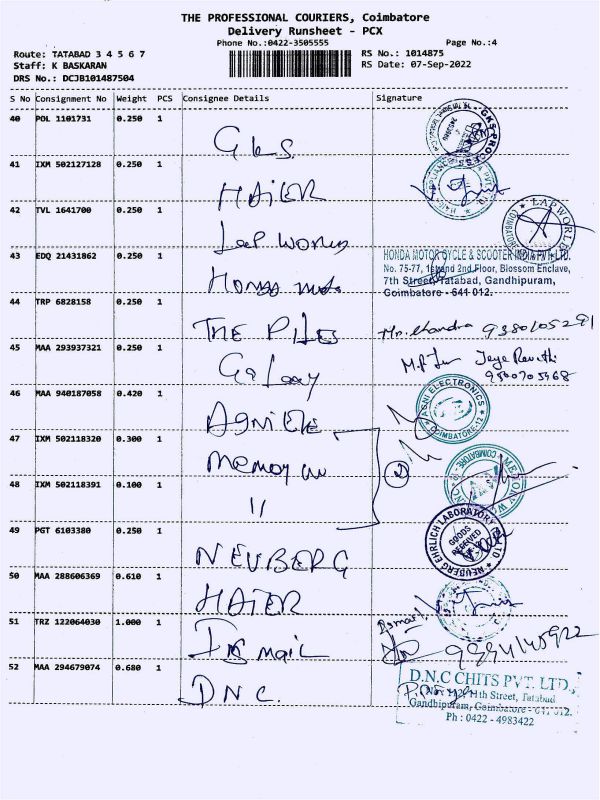 THE PROFESSIONAL COURIERS, Coimbatore
Delivery Runsheet - PCX
Phone No.:0422-3505555
Page No.:4
Route: TATABAD 3 4 5 6 7
RS No.: 1014875
Staff: K BASKARAN
RS Date: 07-Sep-2022
DRS No.: DCJB101487504
S No Consignment No Weight PCS Consignee Details Signature
40 POL 1101731 0.250 1
GKS
41 IXM 502127128 0.250 1
HAIER
42 TVL 1641700 0.250 1
Lap World
LAPWORLD
43 EDQ 21431862 0.250 1
Honda
HONDA MOTORCYCLE & SCOOTER INDIA PVT. LTD.
No. 75-77, 1st and 2nd Floor, Blossom Enclave,
7th Street, Tatabad, Gandhipuram,
Coimbatore - 641 012.
44 TRP 6828158 0.250 1
THE PILES
Mr. Chandra 9380105291
45 MAA 293937321 0.250 1
Galaxy
46 MAA 940187058 0.420 1
AGNI ELE
AGNI ELECTRONICS
COIMBATORE-12
47 IXM 502118320 0.300 1
Memory
2
48 IXM 502118391 0.100 1
"
49 PGT 6103380 0.250 1
NEUBERG
NEUBERG EHRLICH LABORATORY
GOODS
RECEIVED
50 MAA 288606369 0.610 1
HAIER
51 TRZ 122064030 1.000 1
MAIL
52 MAA 294679074 0.680 1
D.N.C.
D.N.C CHITS PVT. LTD.,
11th Street, Tatabad
Gandhipuram, Coimbatore - 641 012.
Ph : 0422 - 4983422